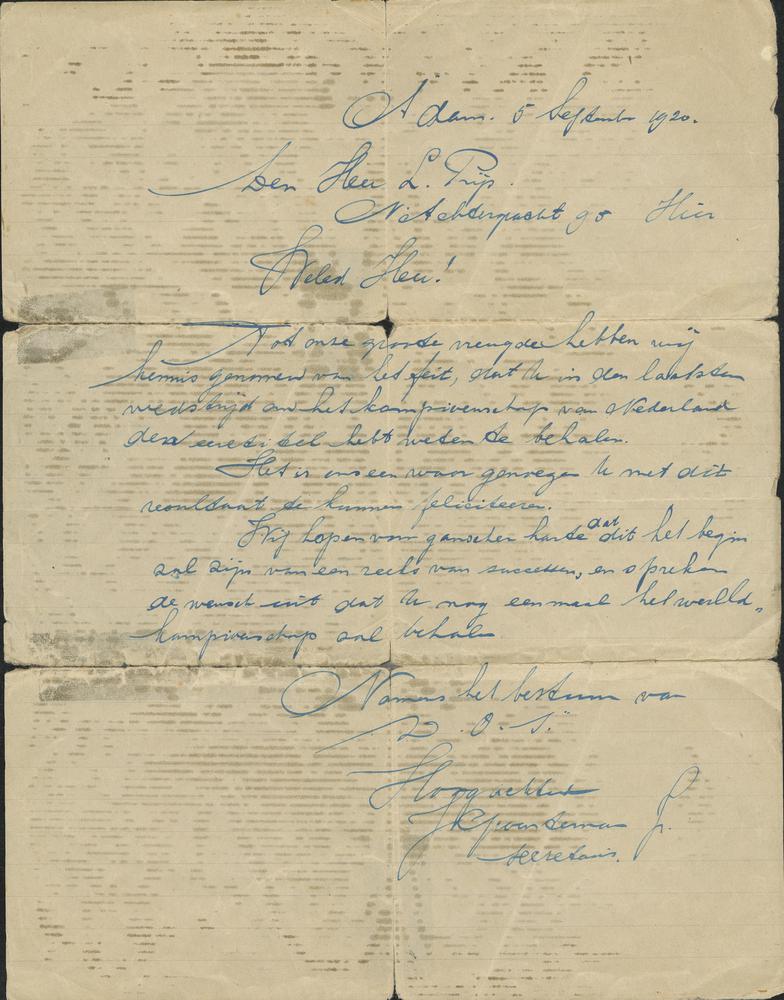 A'dam. 5 September 1920.
Den Heer L. Prijs.
N. Achtergracht 98 Hier
WelEd Heer!
Tot onze groote vreugde hebben wij
kennis genomen van het feit, dat U in den laatsten
wedstrijd om het kampioenschap van Nederland
den eeretitel hebt weten te behalen.
Het is ons een waar genoegen U met dit
resultaat te kunnen feliciteeren.
Wij hopen van ganscher harte dat dit het begin
zal zijn van een reeks van successen, en spreken
de wensch uit dat U nog eenmaal het wereld„
kampioenschap zal behalen
Namens het bestuur van
D. O. S."
Hoogachtend
Jr.
secretaris.